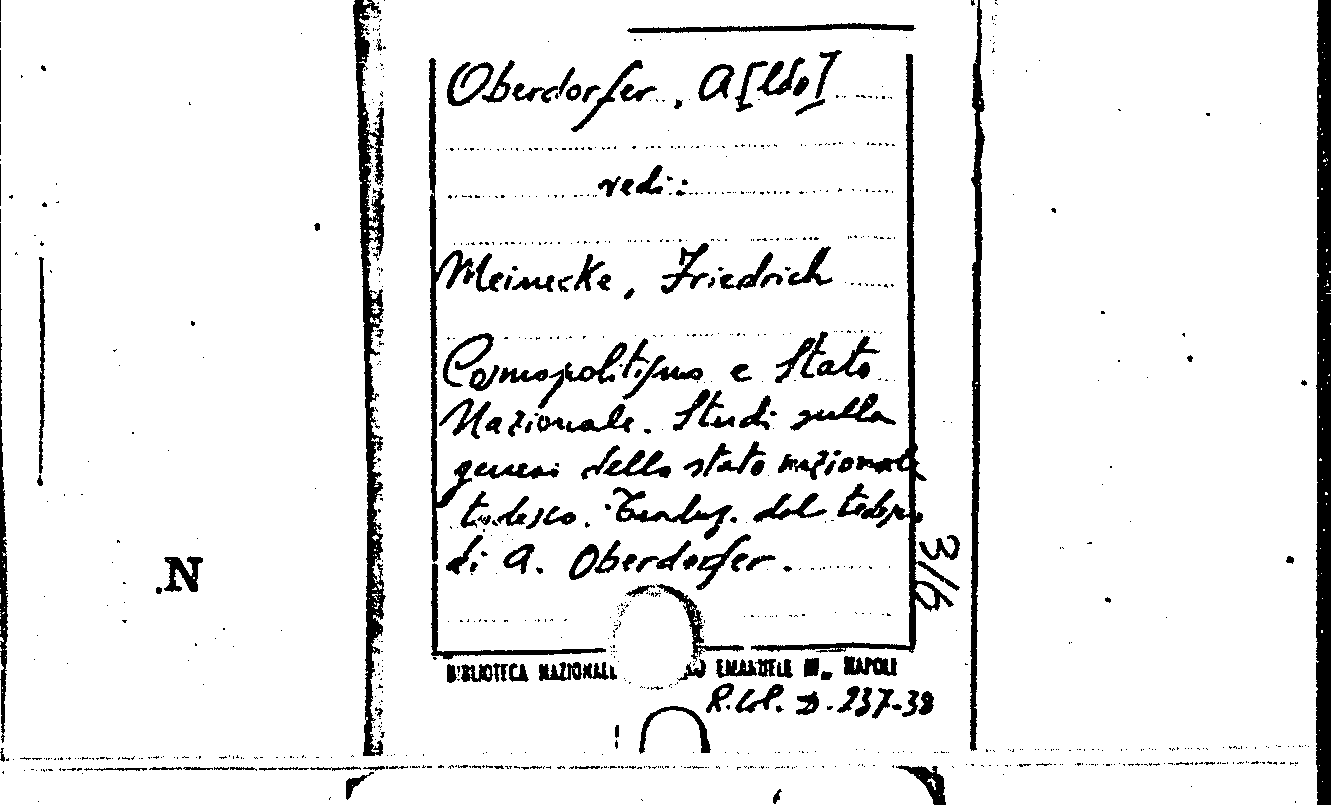 Oberdorfer, A[ldo]
vedi:
Meinecke, Friedrich
Cosmopolitismo e Stato
Nazionale. Studi sulla
genesi dello stato nazionale
tedesco. Traduz. dal tedesco
di A. Oberdorfer.
3/6
N.
BIBLIOTECA NAZIONALE EMANUELE III., NAPOLI
R. Col. D. 237-38